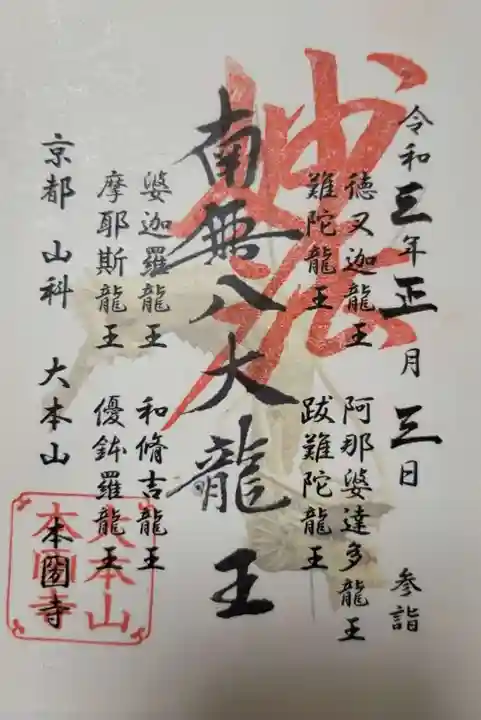 令和三年正月三日 参詣
徳叉迦龍王 阿那婆達多龍王
難陀龍王 跋難陀龍王
妙法
南無八大龍王
婆迦羅龍王 和脩吉龍王
摩耶斯龍王 優鉢羅龍王
京都 山科 大本山 本圀寺
大本山
本圀寺